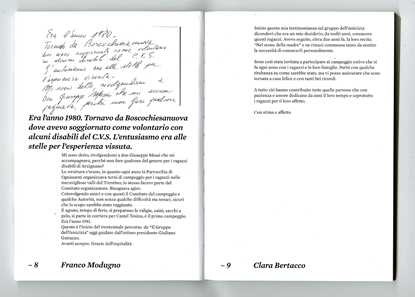 Era l'anno 1980.
Tornavo da Boscochiesanuova
dove avevo soggiornato come volontario
con alcuni disabili del C.V.S.
L'entusiasmo era alle stelle per
l'esperienza vissuta.
Mi sono detto, rivolgendomi a
Don Giuseppe
perché non fare
Era l'anno 1980. Tornavo da Boscochiesanuova
dove avevo soggiornato come volontario con
alcuni disabili del C.V.S. L'entusiasmo era alle
stelle per l'esperienza vissuta.
Mi sono detto, rivolgendomi a don Giuseppe Mosni che mi
accompagnava, perché non fare qualcosa del genere per i ragazzi
disabili di Arzignano?
Le strutture c'erano, in quanto ogni anno la Parrocchia di
Ognissanti organizzava turni di campeggio per i ragazzi nelle
meravigliose valli del Trentino; io stesso facevo parte del
Comitato organizzatore. Bisognava agire.
Coinvolgendo amici e con questi il Comitato del campeggio e
qualche Autorità, non senza qualche difficoltà ma tenaci, sicuri
che lo scopo sarebbe stato raggiunto.
E agosto, tempo di ferie, si preparano le valigie, zaini, sacchi a
pelo, si parte in corriera per Castel Tesino, è il primo campeggio.
Era l'anno 1981.
Questo è l'inizio del trentennale percorso de "Il Gruppo
dell'Amicizia" oggi guidato dall'ottimo presidente Giuliano
Avanti sempre. Grazie dell'ospitalità
– 8 Franco Modugno
Inizio questa mia testimonianza sul gruppo dell'amicizia
dicendovi che era un mio desiderio, da molti anni, conoscere
questi ragazzi. Avevo seguito, circa due anni fa, la loro recita
"Nel nome della strada" e ne rimasi commossa tanto da sentire
la necessità di conoscerli personalmente.
Sono così stata invitata a partecipare al campeggio estivo che si
fa ogni anno con i ragazzi e le loro famiglie. Partii con qualche
titubanza su come sarebbe stato, ma vi posso assicurare che sono
tornata a casa felice e con tanti bei ricordi.
A tutto ciò hanno contribuito tutte quelle persone che con
pazienza e amore dedicano da anni il loro tempo e soprattutto
i ragazzi per il loro affetto.
Con stima e affetto
– 9 Clara Bertacco